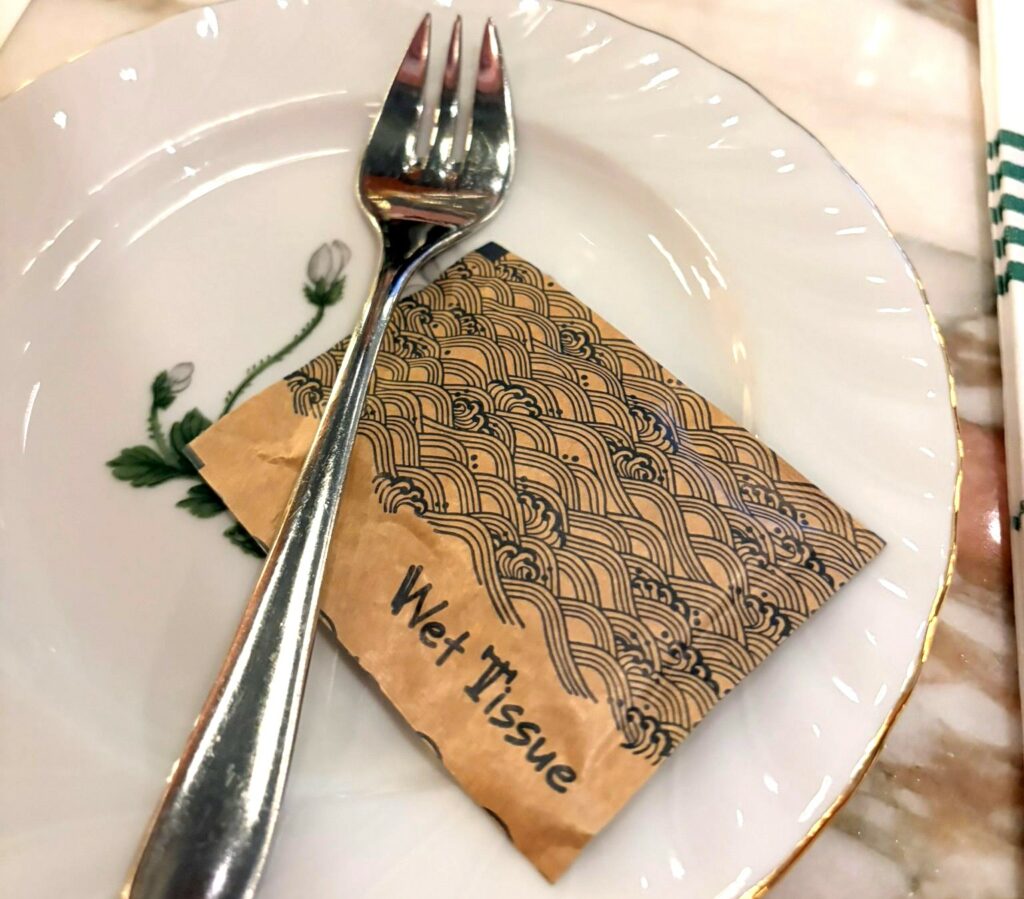 Wet Tissue